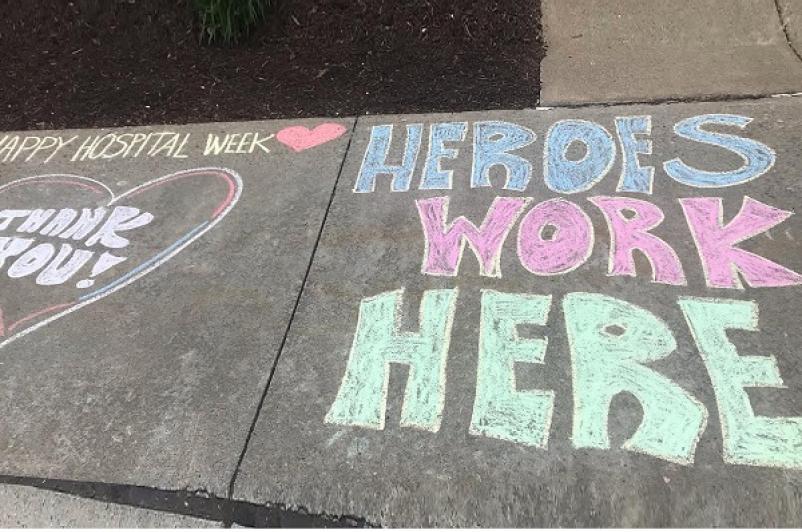 HAPPY HOSPITAL WEEK
THANK
YOU!
HEROES
WORK
HERE